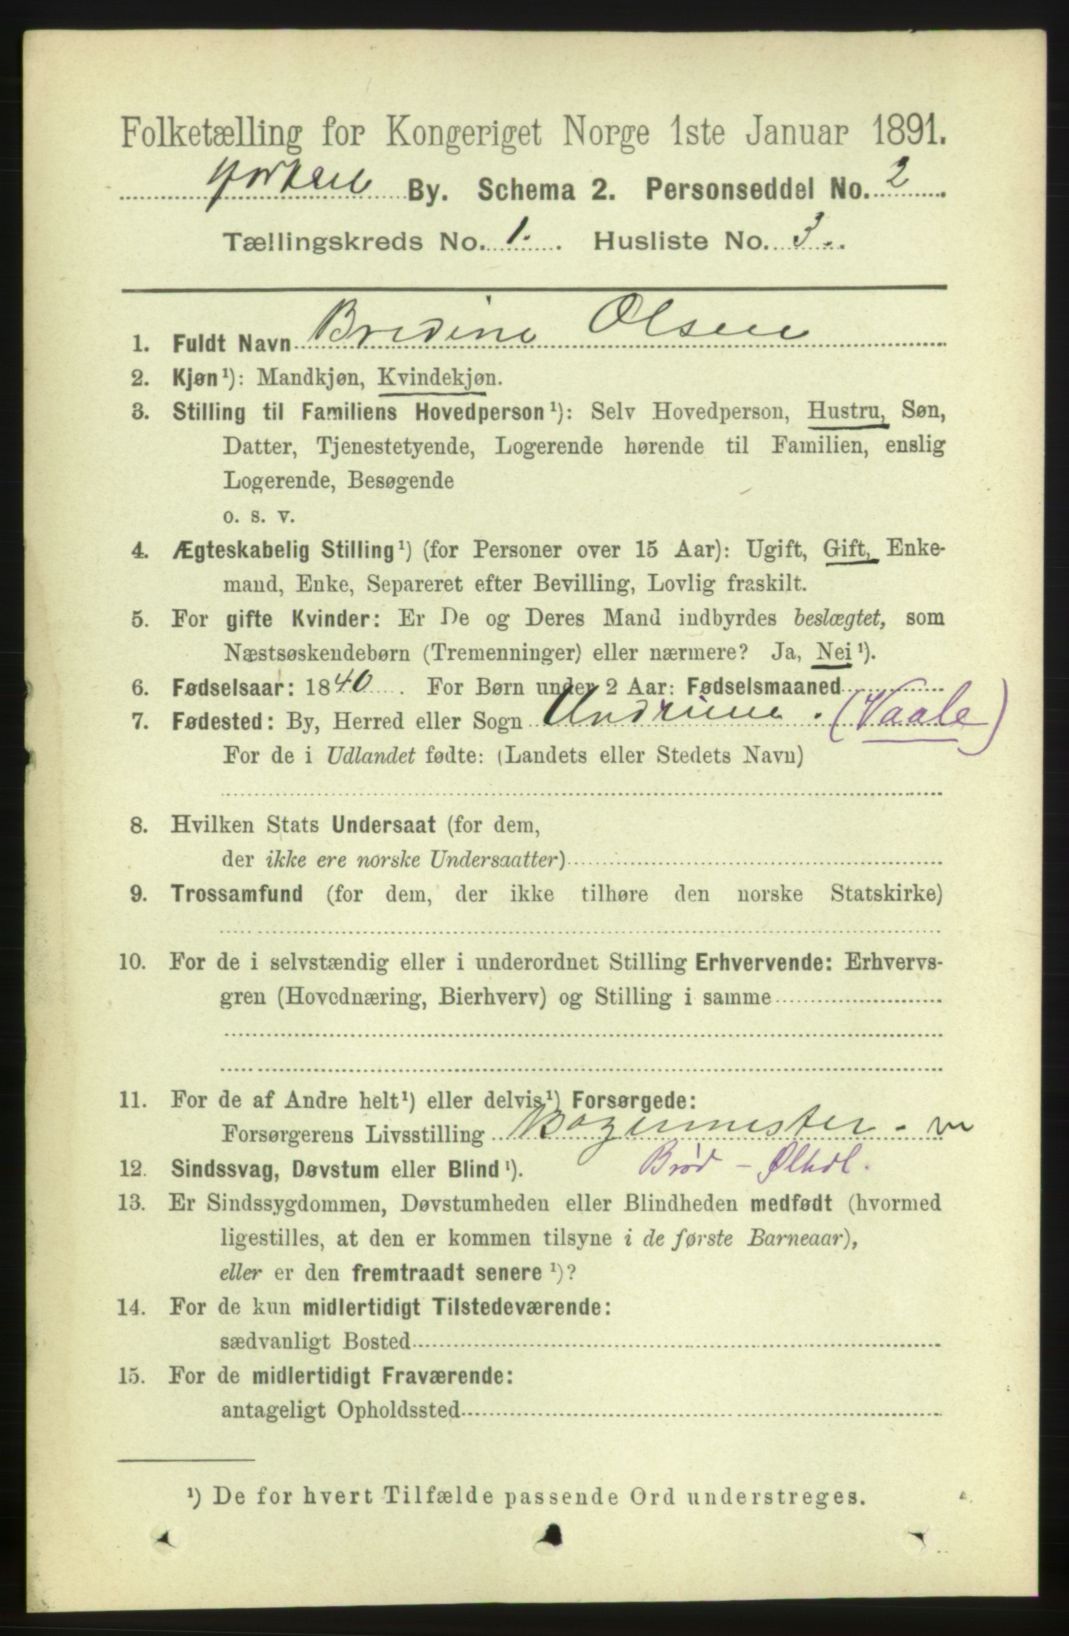 Folketælling for Kongeriget Norge 1ste Januar 1891.
Horten By. Schema 2. Personseddel No. 2
Tællingskreds No. 1. Husliste No. 3.
1. Fuldt Navn Bredine Olsen
2. Kjøn¹): Mandkjøn, Kvindekjøn.
3. Stilling til Familiens Hovedperson¹): Selv Hovedperson, Hustru, Søn,
Datter, Tjenestetyende, Logerende hørende til Familien, enslig
Logerende, Besøgende
o. s. v.
4. Ægteskabelig Stilling¹) (for Personer over 15 Aar): Ugift, Gift, Enke-
mand, Enke, Separeret efter Bevilling, Lovlig fraskilt.
5. For gifte Kvinder: Er De og Deres Mand indbyrdes beslægtet, som
Næstsøskendebørn (Tremenninger) eller nærmere? Ja, Nei¹).
6. Fødselsaar: 1840. For Børn under 2 Aar: Fødselsmaaned
7. Fødested: By, Herred eller Sogn Undrime. (Vaale)
For de i Udlandet fødte: (Landets eller Stedets Navn)
8. Hvilken Stats Undersaat (for dem,
der ikke ere norske Undersaatter)
9. Trossamfund (for dem, der ikke tilhøre den norske Statskirke)
10. For de i selvstændig eller i underordnet Stilling Erhvervende: Erhvervs-
gren (Hovednæring, Bierhverv) og Stilling i samme
11. For de af Andre helt¹) eller delvis¹) Forsørgede:
Forsørgerens Livsstilling Bagermester -
Brød - Ølhdl.
12. Sindssvag, Døvstum eller Blind¹).
13. Er Sindssygdommen, Døvstumheden eller Blindheden medfødt (hvormed
ligestilles, at den er kommen tilsyne i de første Barneaar),
eller er den fremtraadt senere¹)?
14. For de kun midlertidigt Tilstedeværende:
sædvanligt Bosted
15. For de midlertidigt Fraværende:
antageligt Opholdssted
¹) De for hvert Tilfælde passende Ord understreges.